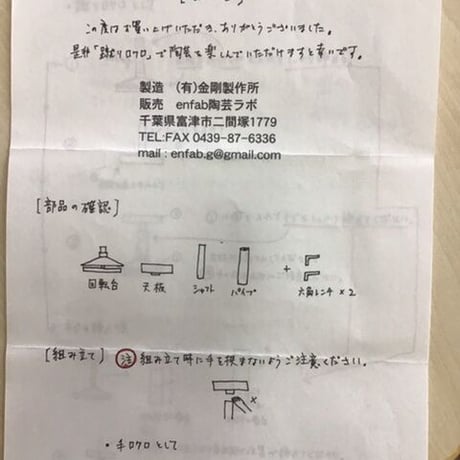 この度はお買い上げいただき、ありがとうございました。
是非「蹴りロクロ」で陶芸を楽しんでいただけますと幸いです。
製造 (有)金剛製作所
販売 enfab陶芸ラボ
千葉県富津市二間塚1779
TEL:FAX 0439-87-6336
mail : enfab.g@gmail.com
[部品の確認]
+
回転台 天板 シャフト パイプ 六角レンチ ×2
[組み立て] 注 組み立て時に手を挟まないようご注意ください。
×
・手ロクロとして